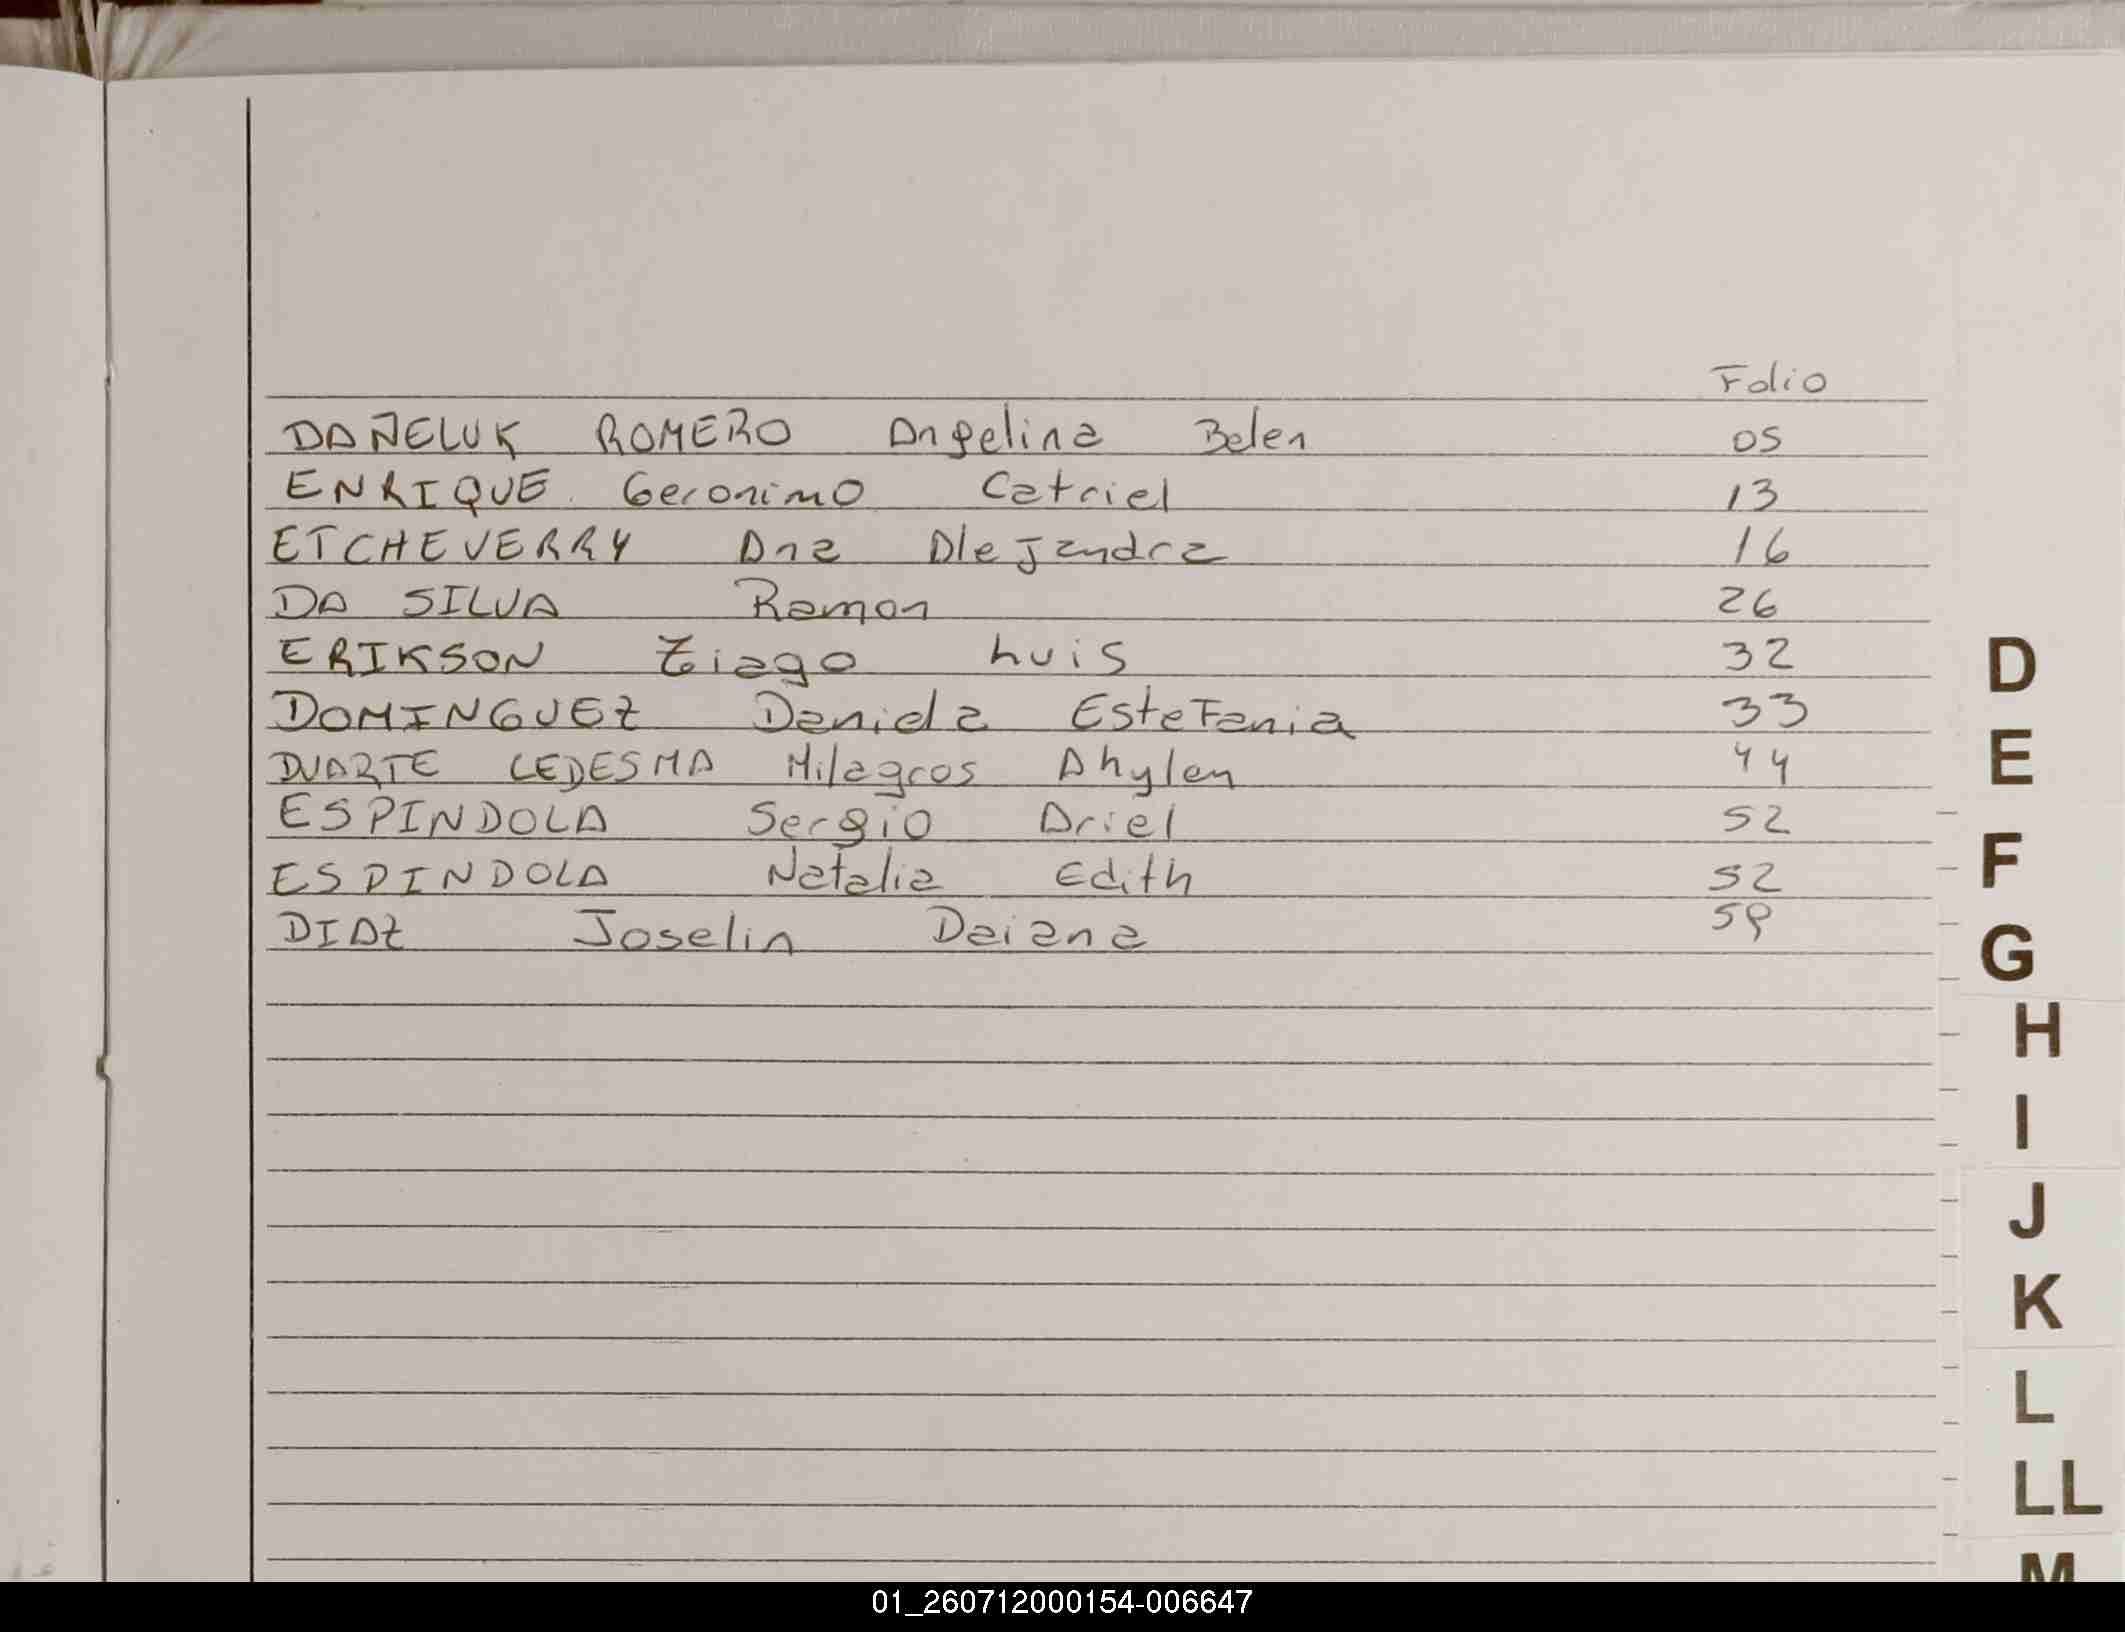 Folio
DAÑELUK ROMERO Angelina Belen 05
ENRIQUE Geronimo Catriel 13
ETCHEVERRY Ana Alejandra 16
DA SILVA Ramon 26
ERIKSON Tiago Luis 32
DOMINGUEZ Daniela Estefania 33
DUARTE LEDESMA Milagros Ahylen 44
ESPINDOLA Sergio Ariel 52
ESPINDOLA Natalia Edith 52
DIAZ Joselin Daiana 59
D
E
F
G
H
I
J
K
L
LL
M
01_260712000154-006647